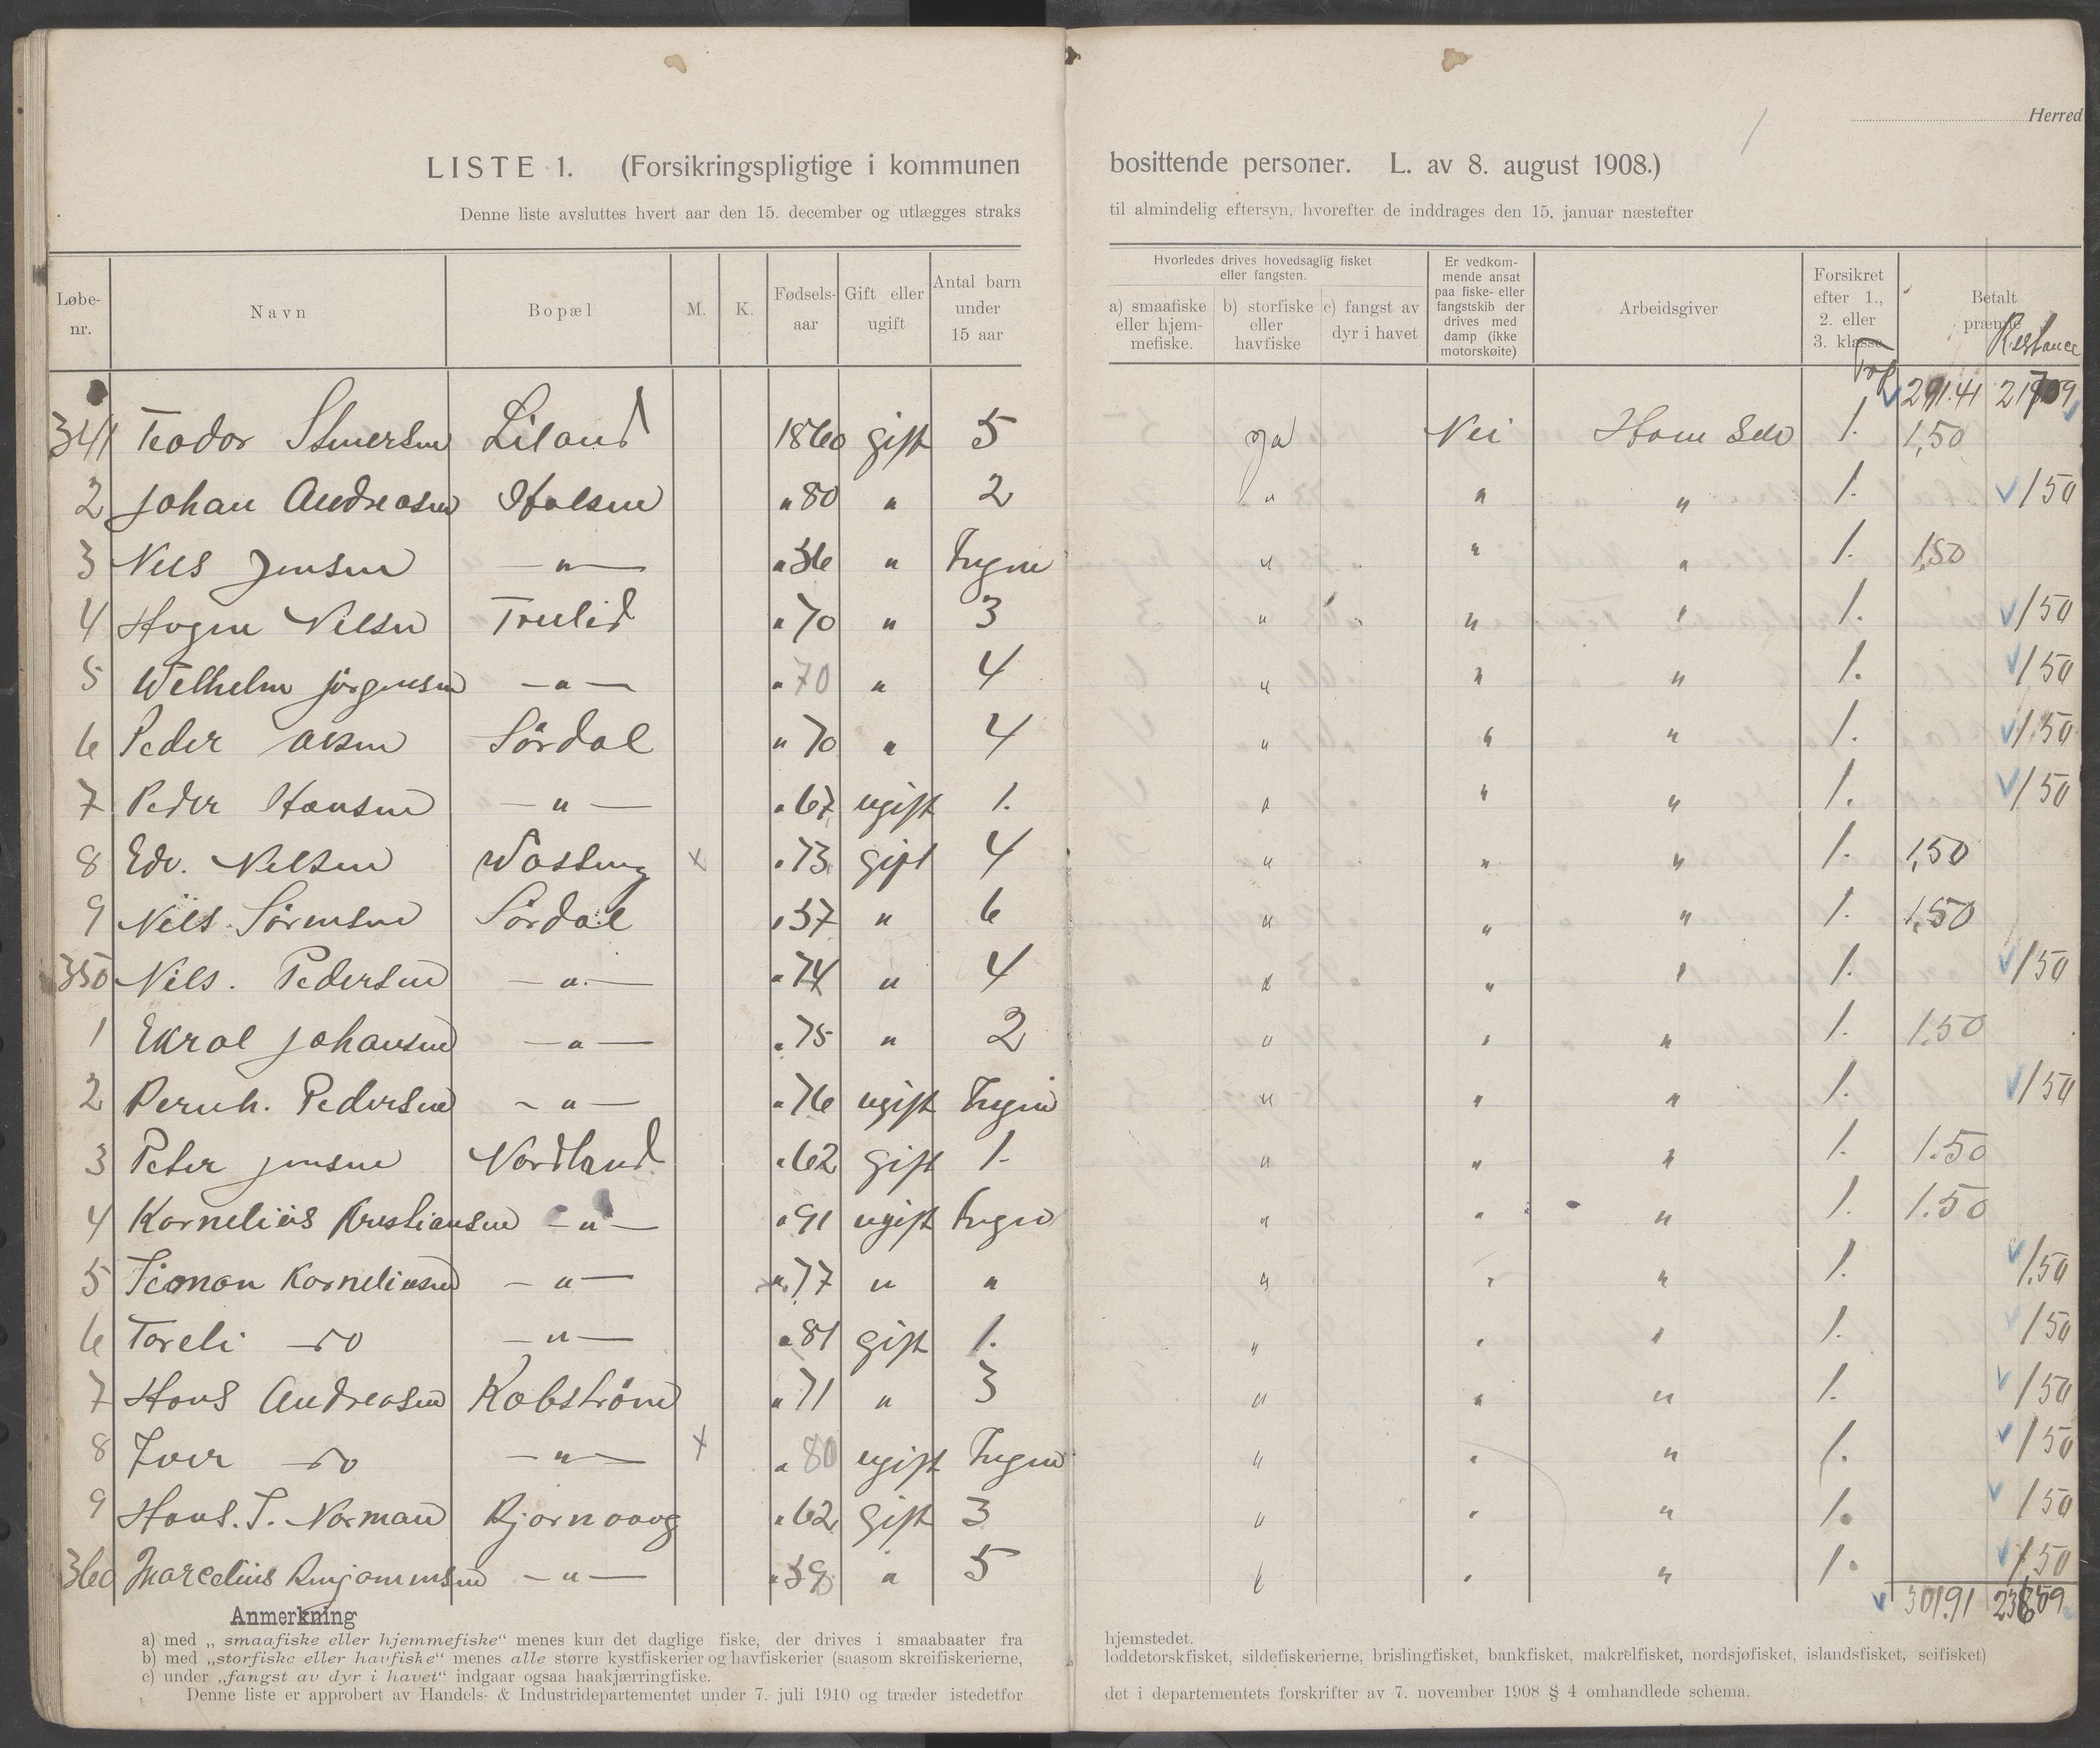 Herred
LISTE 1. (Forsikringspligtige i kommunen bosittende personer. L. av 8. august 1908.)
Denne liste avsluttes hvert aar den 15. december og utlægges straks til almindelig eftersyn, hvorefter de inddrages den 15. januar næstefter
Løbe-nr. Navn Bopæl M. K. Fødsels-aar Gift eller ugift Antal barn under 15 aar Hvorledes drives hovedsaglig fisket eller fangsten. a) smaafiske eller hjem-mefiske. b) storfiske eller havfiske c) fangst av dyr i havet Er vedkom-mende ansat paa fiske- eller fangstskib der drives med damp (ikke motorskøite) Arbeidsgiver Forsikret efter 1., 2. eller 3. klasse Betalt præmie Restance
291.41 21709
341 Teodor Stenersen Liland 1860 gift 5 ja Nei Ham Selv 1. 1,50
2 Johan Andreasen Holsen " 80 " 2 " " " 1. 150
3 Nils Jensen — " — " 56 " Ingen " " " 1. 1,50
4 Hagen Nilsen Trulid " 70 " 3 " " " 1. 150
5 Welhelm Jörgensen — " — " 70 " 4 " " " 1. 150
6 Peder Olsen Sördal " 70 " 4 " " " 1. 1.50
7 Peder Hansen — " — " 67 ugift 1. " " " 1. 150
8 Edv. Nilsen x " 73 gift 4 " " " 1. 1,50
9 Nils Sörensen Sördal " 57 " 6 " " " 1. 1,50
350 Nils. Pedersen — " — " 74 " 4 " " " 1. 150
1 Johansen — " — " 75 " 2 " " " 1. 1.50
2 Bernh. Pedersen — " — " 76 ugift Ingen " " " 1. 150
3 Peter Jensen Nordland " 62 gift 1. " " " 1. 1.50
4 Kornelius Kristiansen — " — " 91 ugift Ingen " " " 1. 1.50
5 Korneliusen — " — " 77 " " " " " 1. 1.50
6 Toreli do — " — " 81 gift 1. " " " 1. 150
7 Hans Andreasen Kobström " 71 " 3 " " " 1. 150
8 Iver do — " — x " 80 ugift Ingen " " " 1. 150
9 Hans. T. Norman Bjornvaag " 62 gift 3 " " " 1. 150
360 Marcelius Benjaminsen — " — " 59 " 5 " " " 1. 1.50
301.91 23609
Anmerkning
a) med „smaafiske eller hjemmefiske“ menes kun det daglige fiske, der drives i smaabaater fra hjemstedet.
b) med „storfiske eller havfiske“ menes alle større kystfiskerier og havfiskerier (saasom skreifiskerierne, loddetorskfisket, sildefiskerierne, brislingfisket, bankfisket, makrelfisket, nordsjøfisket, islandsfisket, seifisket)
c) under „fangst av dyr i havet“ indgaar ogsaa haakjærringfiske.
Denne liste er approbert av Handels- & Industridepartementet under 7. juli 1910 og træder istedetfor det i departementets forskrifter av 7. november 1908 § 4 omhandlede schema.